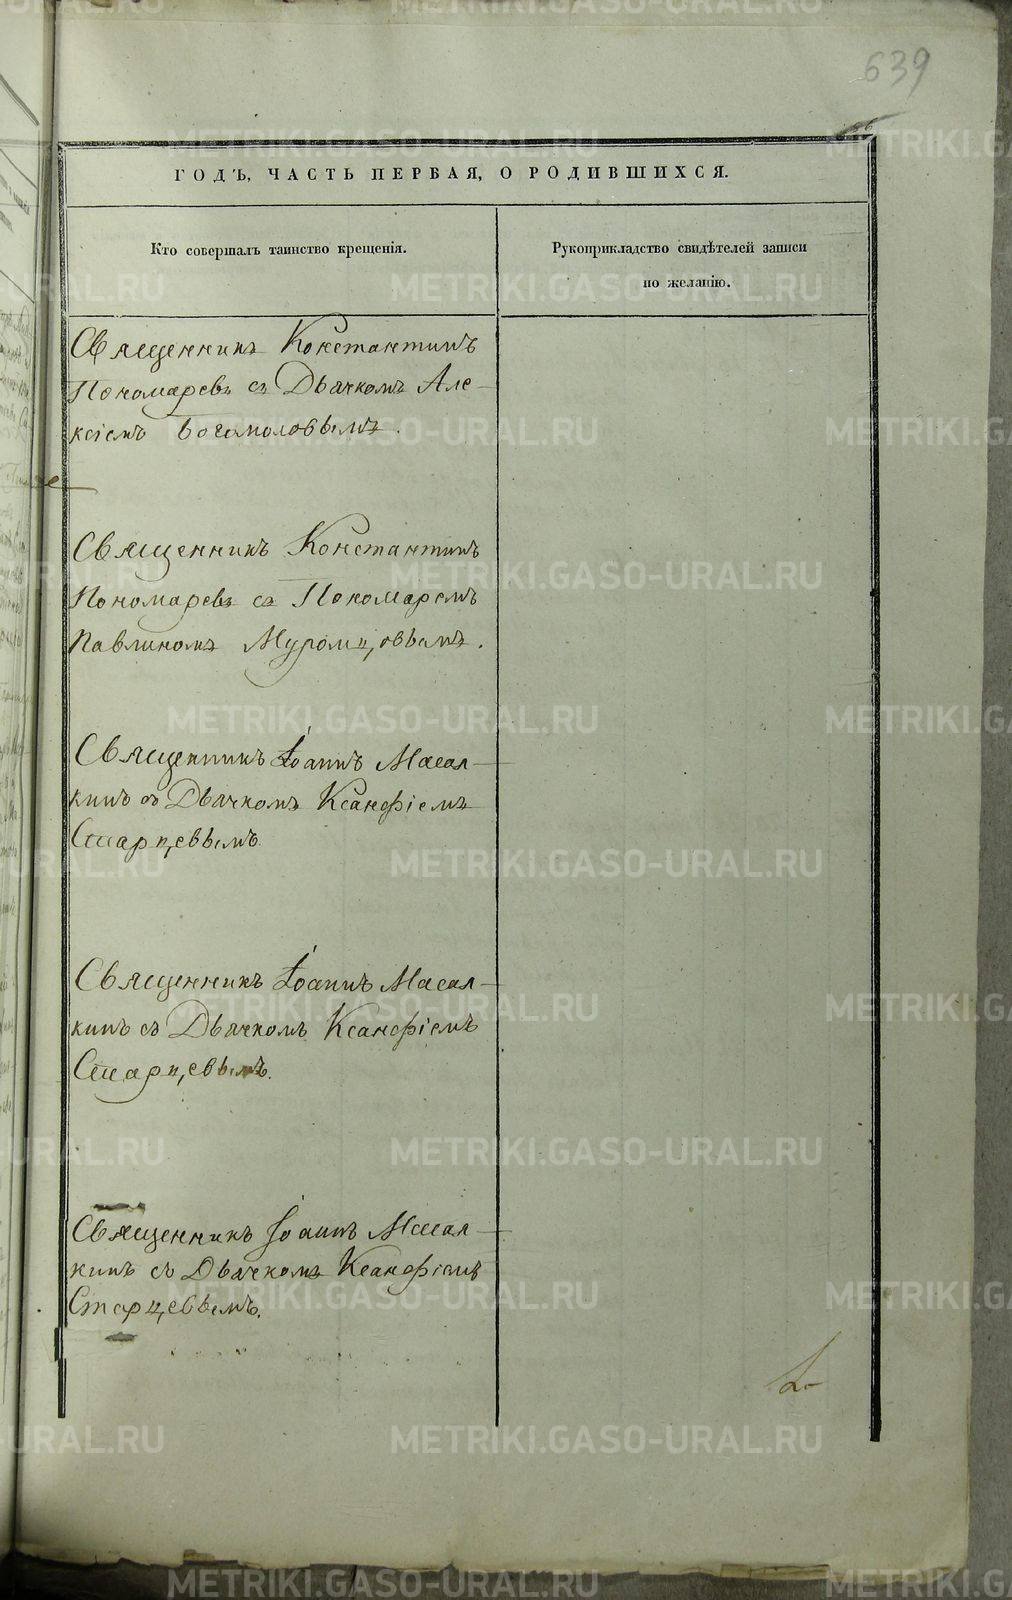 639
ГОДЪ, ЧАСТЬ ПЕРВАЯ, О РОДИВШИХСЯ.
Кто совершалъ таинство крещенія.
Рукоприкладство свидѣтелей записи
по желанію.
Священникъ Константинъ
Пономаревъ съ Дьячкомъ Але-
ксіемъ Богомоловымъ.
Священникъ Константинъ
Пономаревъ съ Пономаремъ
Павлиномъ Муромцовымъ.
Священникъ Іоаннъ Масал-
кинъ съ Дьячкомъ Ксанфіемъ
Старцевымъ
Священникъ Іоаннъ Масал-
кинъ съ Дьячкомъ Ксанфіемъ
Старцевымъ.
Священникъ Іоаннъ Масал-
кинъ съ Дьячкомъ Ксанфіемъ
Старцевымъ.
METRIKI.GASO-URAL.RU